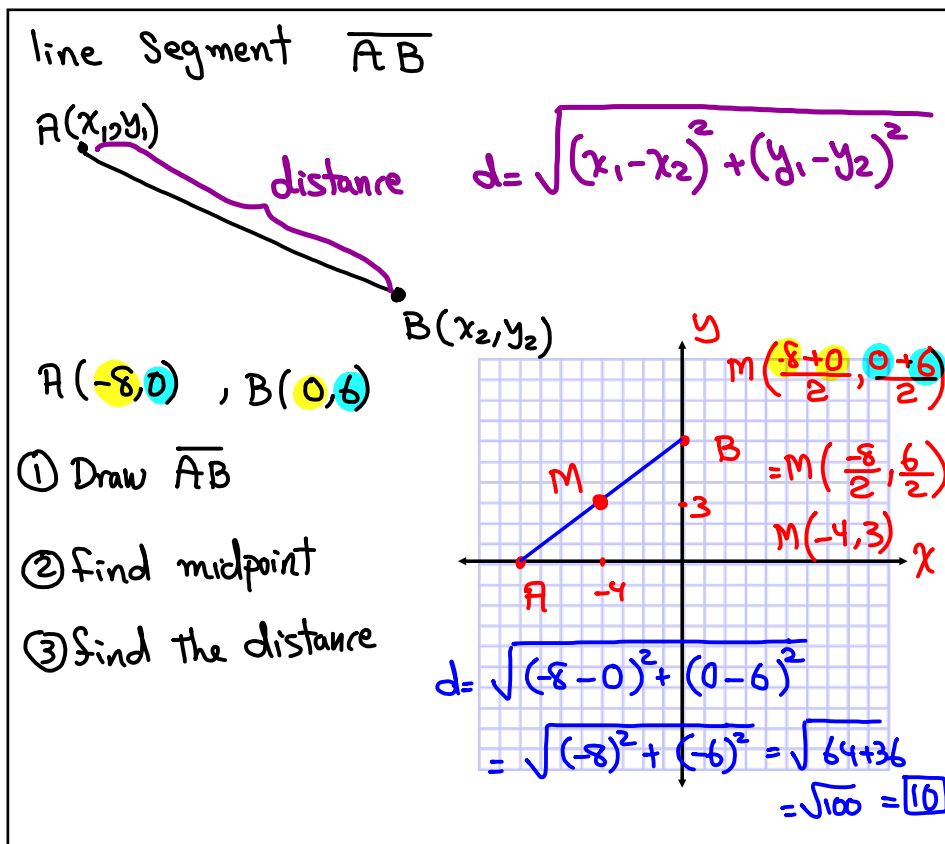 line Segment A̅B̅
A(x₁,y₁)
distance d=√((x₁-x₂)²+(y₁-y₂)²)
B(x₂,y₂)
A(-8,0) , B(0,6)
① Draw A̅B̅
② find midpoint
③ find the distance
y
M((-8+0)/2, (0+6)/2)
B
=M(-8/2, 6/2)
M
3
M(-4,3)
x
A
-4
d=√((-8-0)²+(0-6)²)
=√((-8)²+(-6)²) =√(64+36)
=√100 =10